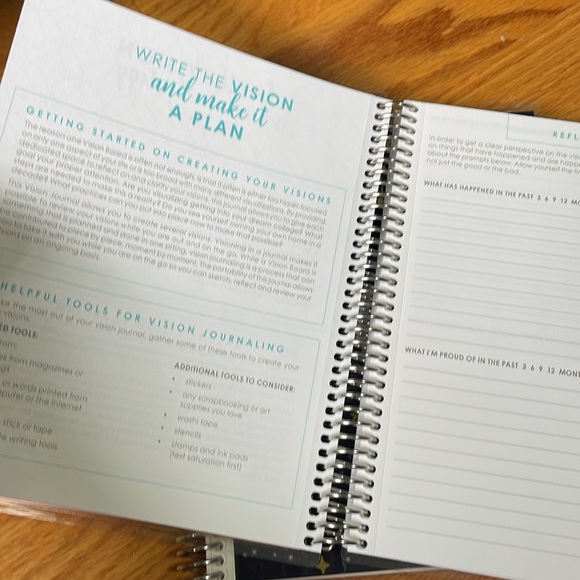 WRITE THE VISION
and make it
A PLAN
GETTING STARTED ON CREATING YOUR VISIONS
The reason one Vision Board is often not enough, is that it often is either too hyper-focused
on only one aspect of your life or is too broad with many different visualizations. By providing
dedicated space to reflect on and clarify your visions, this journal allows you to give each
goal your proper attention. Are you visualizing your child going to college? What
steps are needed to make this a reality? Do you see yourself owning your own home in a
decade? What practices can you put into place now to make that possible?
This Vision Journal allows you to create several visions. Visioning in a journal makes it
you to take it piece by piece, moment by moment. The portability of this journal allows
with you while you are on the go so you can sketch, reflect and review your
visions on an ongoing basis.
HELPFUL TOOLS FOR VISION JOURNALING
the most out of your vision journal, gather some of these tools to create your
visions.
TOOLS:
from magazines or
or words printed from
or the internet
stick or tape
writing tools
ADDITIONAL TOOLS TO CONSIDER:
• stickers
• any scrapbooking or art
supplies you love
• washi tape
• stencils
• stamps and ink pads
(test saturation first)
REFL
In order to get a clear perspective on the
on things that have happened and are
about the prompts below. Allow yourself the
not just the good or the bad.
WHAT HAS HAPPENED IN THE PAST 3 6 9 12 MO
WHAT I'M PROUD OF IN THE PAST 3 6 9 12 MONT